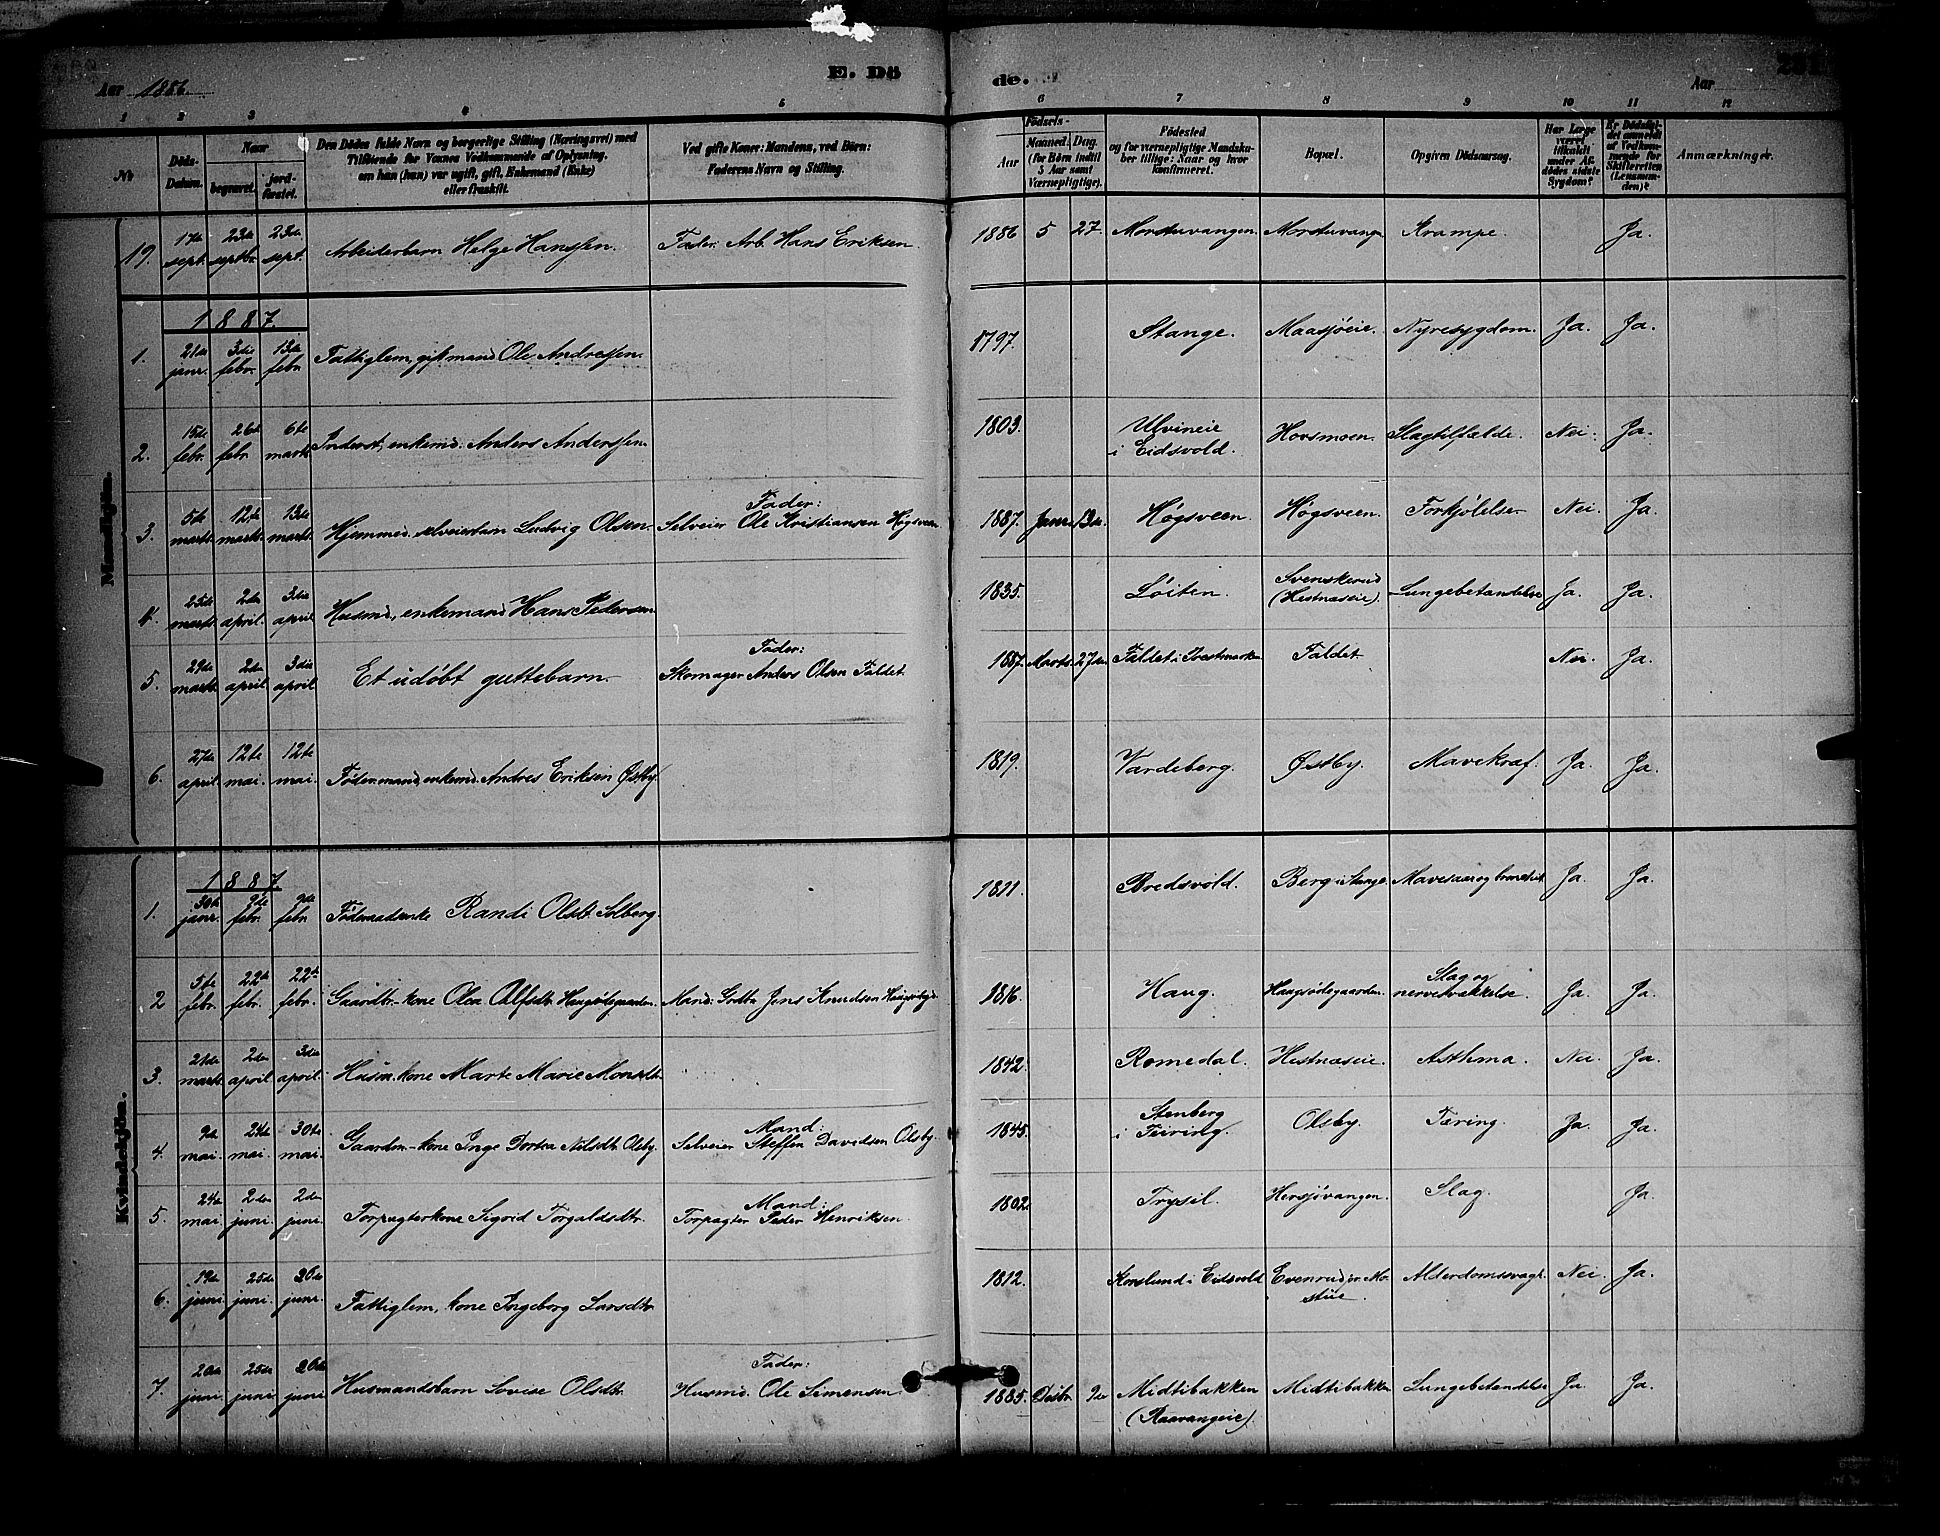 Aar 1886.
E. Dö
de.
Aar
1 2 3 4 5 6 7 8 9 10 11 12
No
Döds-
Datum.
Naar
begravet.
jord-
fæstet.
Den Dödes fulde Navn og borgerlige Stilling (Næringsvei) med
Tilföiende for Voxnes Vedkommende af Oplysning,
om han (hun) var ugift, gift, Enkemand (Enke)
eller fraskilt.
Ved gifte Koner: Mandens, ved Börn:
Faderens Navn og Stilling.
Födsels-
Aar
Maaned. Dag.
(for Börn indtil
5 Aar samt
Værnepligtige).
Födested
og for værnepligtige Mandska-
ber tillige: Naar og hvor
konfirmeret.
Bopæl.
Opgiven Dödsaarsag.
Har Læge
været
tilkaldt
under Af-
dödes sidste
Sygdom?
Er Dödsfal-
det anmeldt
af Vedkom-
mende for
Skifteretten
(Lensman-
den)?
Anmærkninger.
Mandkjön.
19. 17de sept. 23de septbr. 23de sept. Arbeiderbarn Helge Hanssen. Fader: Arb. Hans Eriksen. 1886 5 27. Morstuvangen. Morstuvangen Krampe. Ja.
1887.
1. 21de janr. 3die febr. 13de febr. Fattiglem, gift mand Ole Andressen. 1797. Stange. Maasjøeie. Nyresygdom. Ja. Ja.
2. 15de febr. 26de febr. 6te marts Inderst, enkemd. Anders Anderssen. 1803. Ulvineie i Eidsvold. Hovsmoen. Slagtilfælde. Nei. Ja.
3. 5te marts. 12te marts. 13de marts. Hjemmed. selveierbarn Ludvig Olsen. Fader: Selveier Ole Kristiansen Høgsveen 1887. Janr. 13de. Høgsveen. Høgsveen. Forkjølelse. Nei. Ja.
4. 25de marts. 2den april. 3die april. Husmd., enkemand Hans Pedersen 1835. Løiten. Svenskerud (Hestnæseie). Lungebetændelse Ja. Ja.
5. 29de marts. 2den april. 3die april. Et udøbt guttebarn. Fader: Skomager Anders Olsen Faldet. 1887. Marts. 27de. Faldet i Prestmarken Faldet. Nei. Ja.
6. 27de april. 12te mai. 12te mai. Føderaadmand, enkemd. Andres Eriksen Østby. 1819. Vardeberg. Østby. Mavekræf. Ja. Ja.
Kvindekjön.
1887.
1. 30te janr. 9de febr. 9de febr. Føderaadsenke Randi Olsdt. Solberg. 1811. Bredsvold. Berg i Stange. Mavesaar og bronchit. Ja. Ja.
2 5te febr. 22de febr. 22de febr. Gaardbr.-kone Olea Olfsdtr. Haugsødegaarden. Mand: Jens Knudsen 1816. Haug. Haugsødegaarden. Slag og nervesvækkelse. Ja. Ja.
3. 21de marts. 2den april. 3die april. Husm. kone Marte Marie Monsdtr. 1842. Romedal. Hestnæseie. Asthma. Nei. Ja.
4. 9de mai. 24de mai. 30te mai. Gaardm.-kone Inge Dortea Nilsdtr. Olsby. Mand: Selveier Steffen Davidsen Olsby. 1845. Stenberg i Feiring. Olsby. Tæring. Ja. Ja.
5. 24de mai. 2den juni. 2den juni. Forpagterkone Sigrid Torgaldsdtr. Mand: Forpagter Peder Henriksen. 1802. Trysil. Hersjøvangen. Slag. Ja.
6. 19de juni. 25de juni. 26de juni. Fattiglem, kone Ingeborg Larsdtr. 1812. Korslund i Eidsvold Evenrud in. Mo- stue. Alderdomssvagh. Nei. Ja.
7. 20de juni. 25de juni. 26de juni. Husmandsbarn Lovise Olsdtr. Fader: Husmd. Ole Simensen. 1885. Decbr. 9de Midtibakken (Raavangeie). Midtibakken Lungebetændelse Ja. Ja.